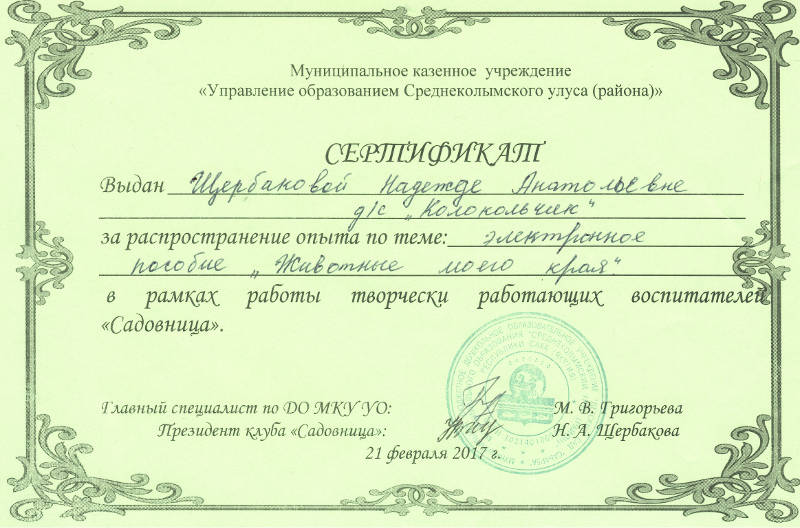 Муниципальное казенное учреждение
«Управление образованием Среднеколымского улуса (района)»
СЕРТИФИКАТ
Выдан Щербаковой Надежде Анатольевне
д/с „Колокольчик“
за распространение опыта по теме: электронное
пособие „Животные моего края“
в рамках работы творчески работающих воспитателей
«Садовница».
Главный специалист по ДО МКУ УО: М. В. Григорьева
Президент клуба «Садовница»: Н. А. Щербакова
21 февраля 2017 г.